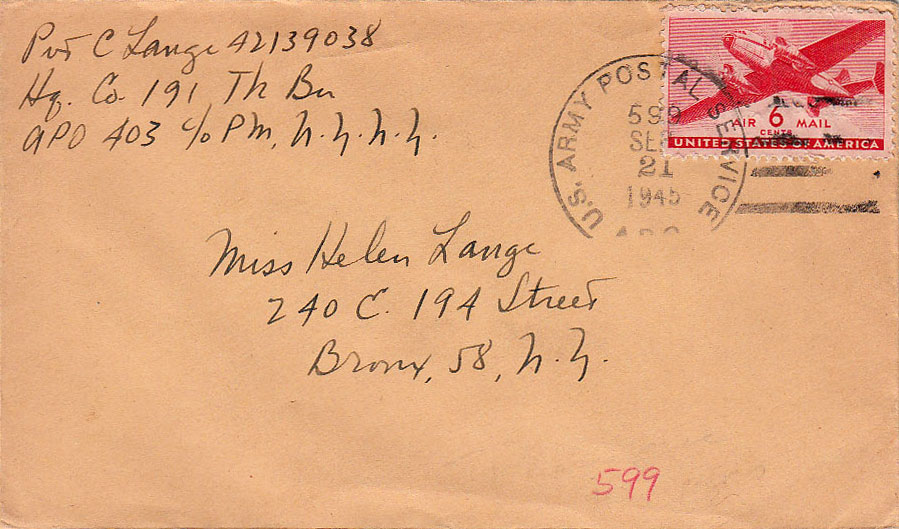 Pvt C Lange 42139038
Hq. Co. 191 Th Bn
APO 403 c/o PM, N.Y.N.Y.
U.S. ARMY POSTAL SERVICE
599
SEP
21
1945
APO
AIR 6 MAIL
CENTS
UNITED STATES OF AMERICA
Miss Helen Lange
240 E. 194 Street
Bronx, 58, N.Y.
599